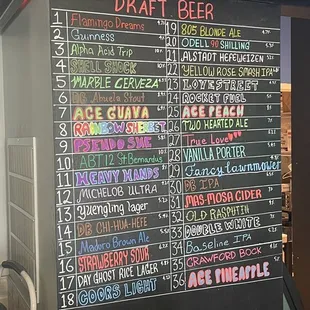 DRAFT BEER
1 Flamingo Dreams
2 Guinness
3 Alpha Acid Trip
4 SHELL SHOCK
5 MARBLE CERVEZA
6 Abuela Stout
7 ACE GUAVA
8 RAINBOW SHERBET
9 PSEUDO SUE
10 ABT 12 St Bernardus
11 HEAVY HANDS
12 MICHELOB ULTRA
13 Yuengling lager
14 DB CHI-HUA-HEFE
15 Maduro Brown Ale
16 STRAWBERRY SOUR
17 DAY GHOST RICE LAGER
18 COORS LIGHT
19 805 BLONDE ALE
20 ODELL 90 SHILLING
21 ALSTADT HEFEWEIZEN
22 YELLOW ROSE SMASH IPA
23 LOVE STREET
24 ROCKET FUEL
25 ACE PEACH
26 TWO HEARTED ALE
27 True Love
28 VANILLA PORTER
29 Fancy Lawnmower
30 DB IPA
31 MAS-MOSA CIDER
32 OLD RASPUTIN
33 DOUBLE WHITE
34 Baseline IPA
35 CRAWFORD BOCK
36 ACE PINEAPPLE